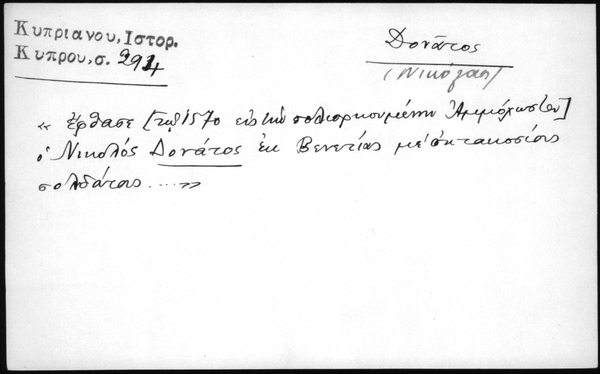 Κυπριανου, Ιστορ.
Κυπρου, σ. 291
Δονᾶτος
(Νικόλαος)
« Ἔφθασε [τῷ 1570 εἰς τὴν πολιορκουμένην Ἀμμόχωστον]
ὁ Νικολὸς Δονάτος ἐκ Βενετίας μὲ ὀκτακοσίους
σολδάτους .... »